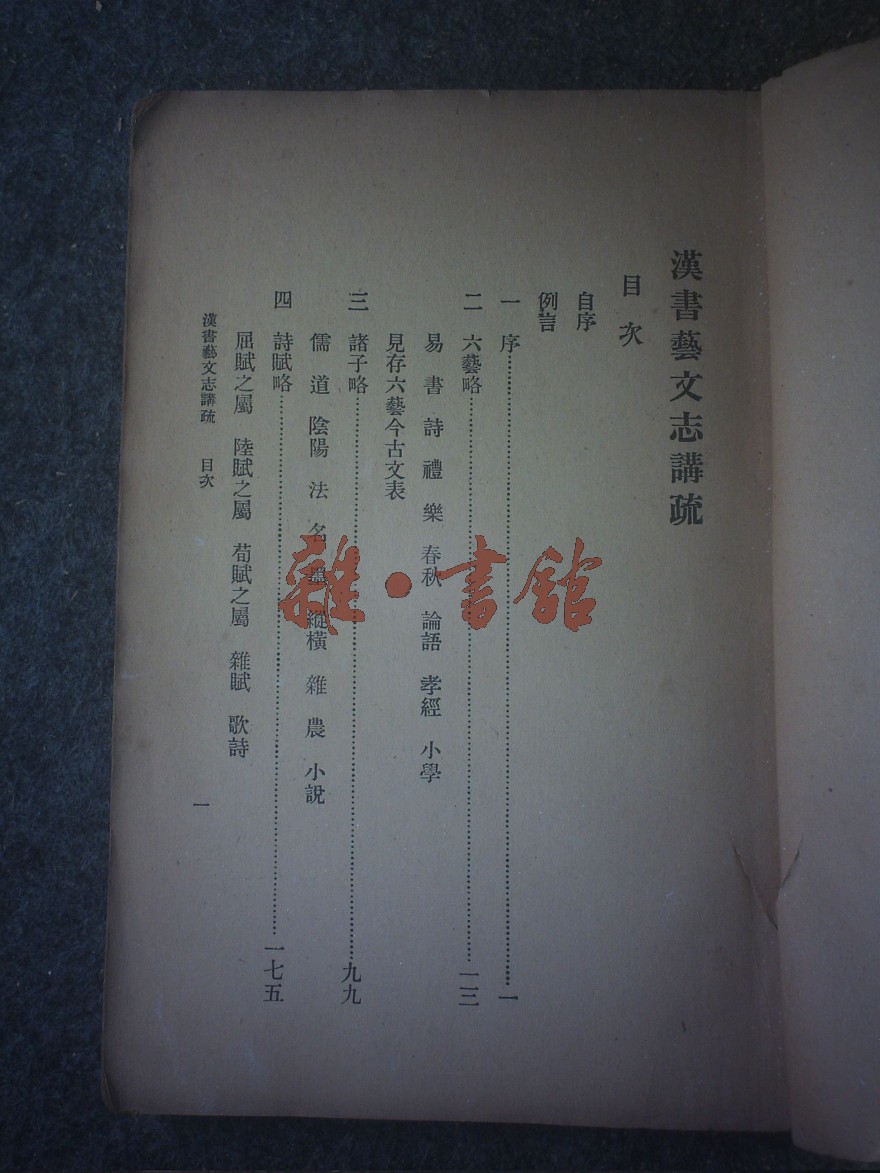 漢書藝文志講疏
目次
自序
例言
一 序⋯⋯⋯⋯一
二 六藝略⋯⋯⋯⋯一三
易 書 詩 禮 樂 春秋 論語 孝經 小學
見存六藝今古文表
三 諸子略⋯⋯⋯⋯九九
儒 道 陰陽 法 名 墨 縱橫 雜 農 小說
四 詩賦略⋯⋯⋯⋯一七五
屈賦之屬 陸賦之屬 荀賦之屬 雜賦 歌詩
漢書藝文志講疏 目次
一
雜·書館